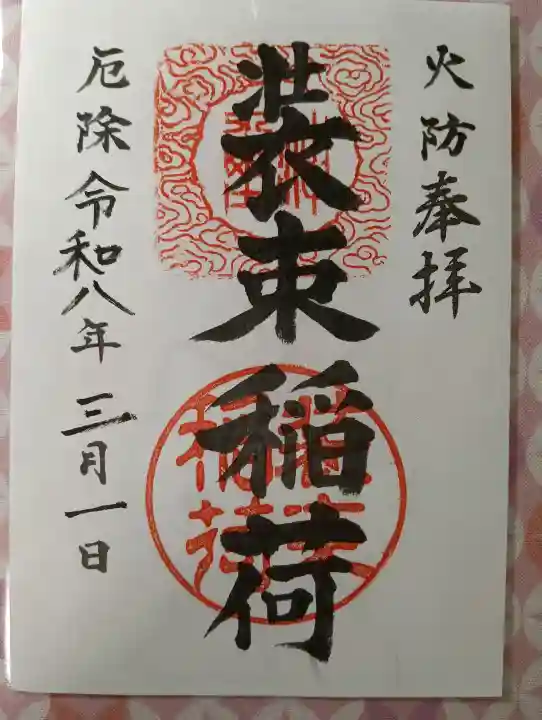 火防奉拝
装束稲荷
厄除令和八年三月一日